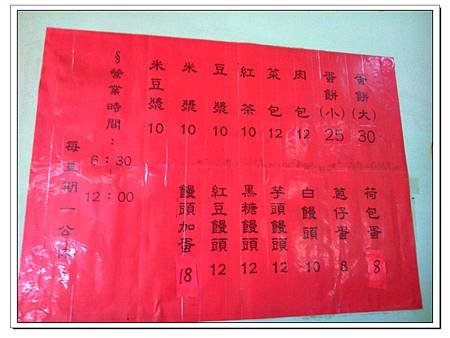 蛋餅(大) 30
蛋餅(小) 25
肉包 12
菜包 12
紅茶 10
豆漿 10
米漿 10
米豆漿 10
荷包蛋 8
蔥仔蛋 8
白饅頭 10
芋頭饅頭 12
黑糖饅頭 12
紅豆饅頭 12
饅頭加蛋 18
§營業時間:
6:30
12:00
每星期一公休